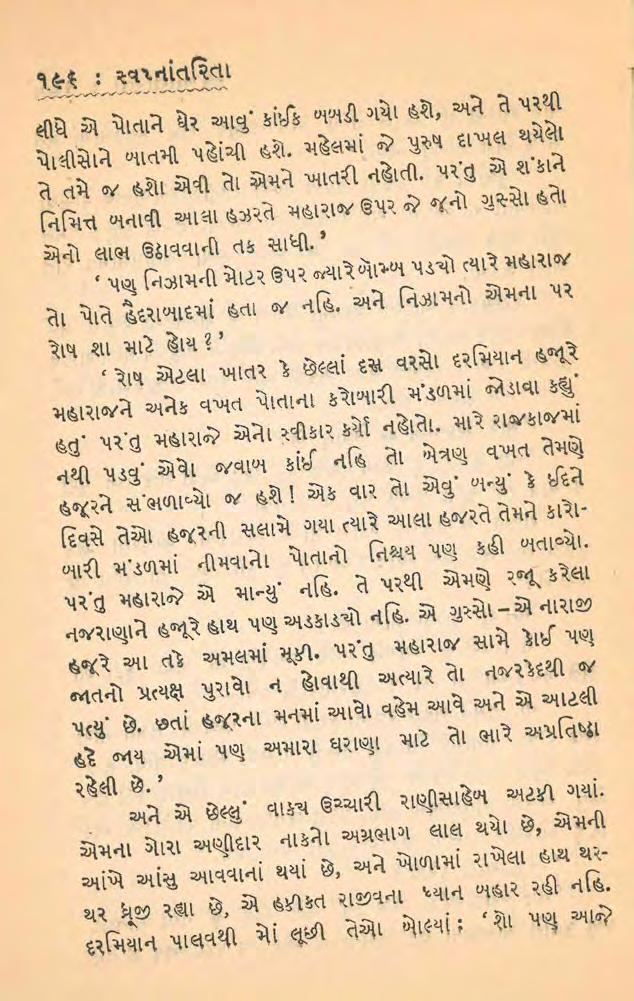 ૧૯૬ : સ્વપ્નાંતરિતા
લીધે એ પોતાને ઘેર આવું કાંઈક બબડી ગયો હશે, અને તે પરથી
પોલીસોને બાતમી પહોંચી હશે. મહેલમાં જે પુરુષ દાખલ થયેલો
તે તમે જ હશો એવી તો એમને ખાતરી નહોતી. પરંતુ એ શંકાને
નિમિત્ત બનાવી આલા હઝરતે મહારાજ ઉપર જે જૂનો ગુસ્સો હતો
એનો લાભ ઉઠાવવાની તક સાધી.’
‘પણ નિઝામની મોટર ઉપર જ્યારે બૉમ્બ પડચો ત્યારે મહારાજ
તો પોતે હૈદરાબાદમાં હતા જ નહિ. અને નિઝામનો એમના પર
રોષ શા માટે હોય ?’
‘રોષ એટલા ખાતર કે છેલ્લાં દસ વરસો દરમિયાન હજૂરે
મહારાજને અનેક વખત પોતાના કરોબારી મંડળમાં જોડાવા કહ્યું
હતું પરંતુ મહારાજે એનો સ્વીકાર કર્યો નહોતો. મારે રાજકાજમાં
નથી પડવું એવો જવાબ કાંઈ નહિ તો બેત્રણ વખત તેમણે
હજૂરને સંભળાવ્યો જ હશે ! એક વાર તો એવું બન્યું કે ઈદને
દિવસે તેઓ હજૂરની સલામે ગયા ત્યારે આલા હજરતે તેમને કારો-
બારી મંડળમાં નીમવાનો પોતાનો નિશ્ચય પણ કહી બતાવ્યો.
પરંતુ મહારાજે એ માન્યું નહિ. તે પરથી એમણે રજૂ કરેલા
નજરાણાને હજૂરે હાથ પણ અડકાડચો નહિ. એ ગુસ્સો – એ નારાજી
હજૂરે આ તકે અમલમાં મૂકી. પરંતુ મહારાજ સામે કોઈ પણ
જાતનો પ્રત્યક્ષ પુરાવો ન હોવાથી અત્યારે તો નજરકેદથી જ
પત્યું છે. છતાં હજૂરના મનમાં આવો વહેમ આવે અને એ આટલી
હદે જાય એમાં પણ અમારા ઘરાણા માટે તો ભારે અપ્રતિષ્ઠા
રહેલી છે.’
અને એ છેલ્લું વાક્ય ઉચ્ચારી રાણીસાહેબ અટકી ગયાં.
એમના ગોરા અણીદાર નાકનો અગ્રભાગ લાલ થયો છે, એમની
આંખે આંસુ આવવાનાં થયાં છે, અને ખોળામાં રાખેલા હાથ થર-
થર ધ્રૂજી રહ્યા છે, એ હકીકત રાજીવના ધ્યાન બહાર રહી નહિ.
દરમિયાન પાલવથી મોં લૂછી તેઓ બોલ્યાં : ‘શો પણ આજે